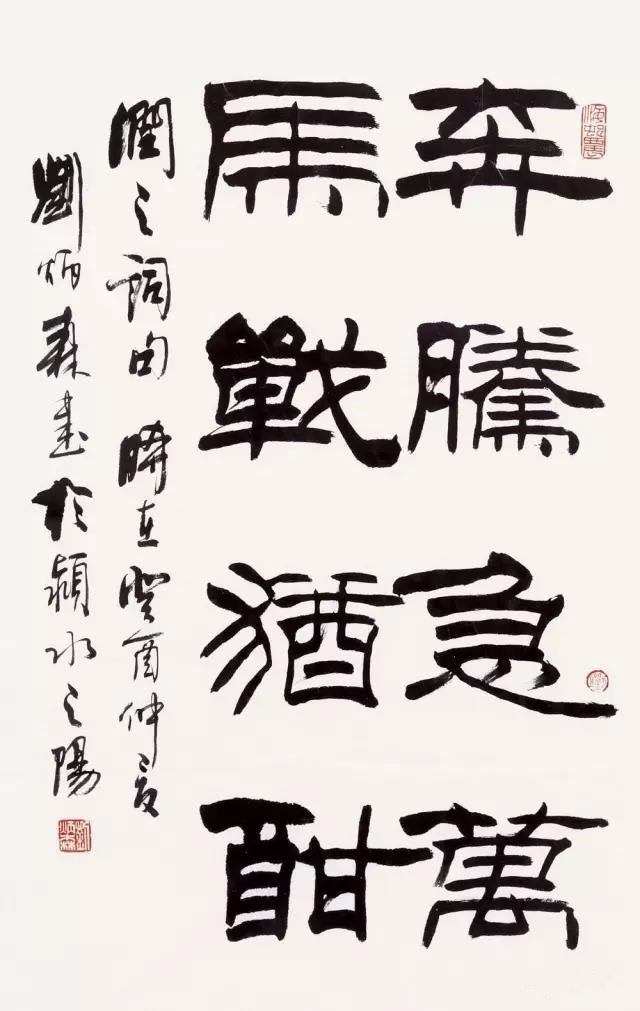 奔騰急萬
馬戰猶酣
潤之詞句 時在癸酉仲夏
劉炳森書於潁水之陽